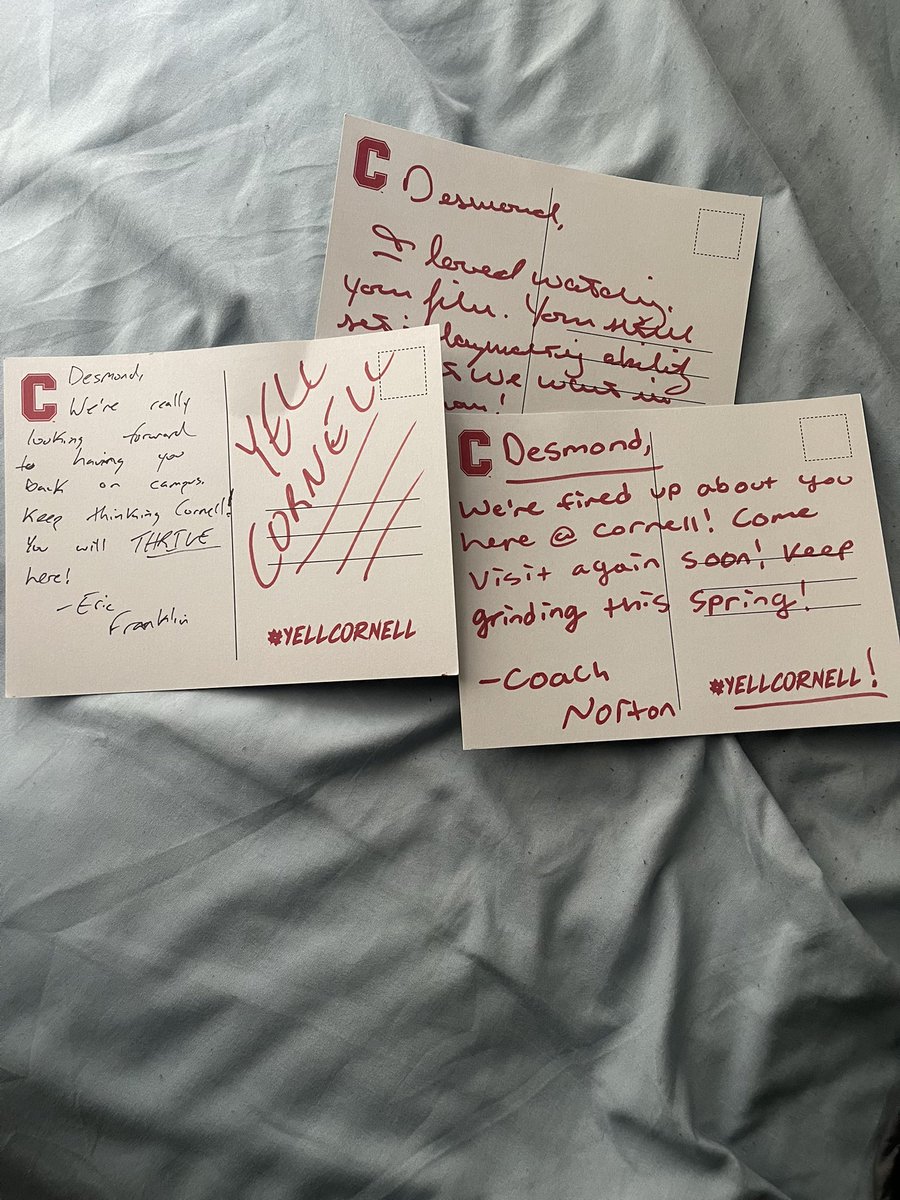 C
Desmond,
I loved watchin
your film. Your skill
set playmaking ability
we want in
C
Desmond,
We're really
looking forward
to having you
back on campus.
Keep thinking Cornell!
You will THRIVE
here!
-Eric
Franklin
YELL
CORNELL
#YELLCORNELL
C
Desmond,
We're fired up about you
here @ Cornell! Come
visit again soon! Keep
grinding this spring!
-Coach
Norton
#YELLCORNELL!